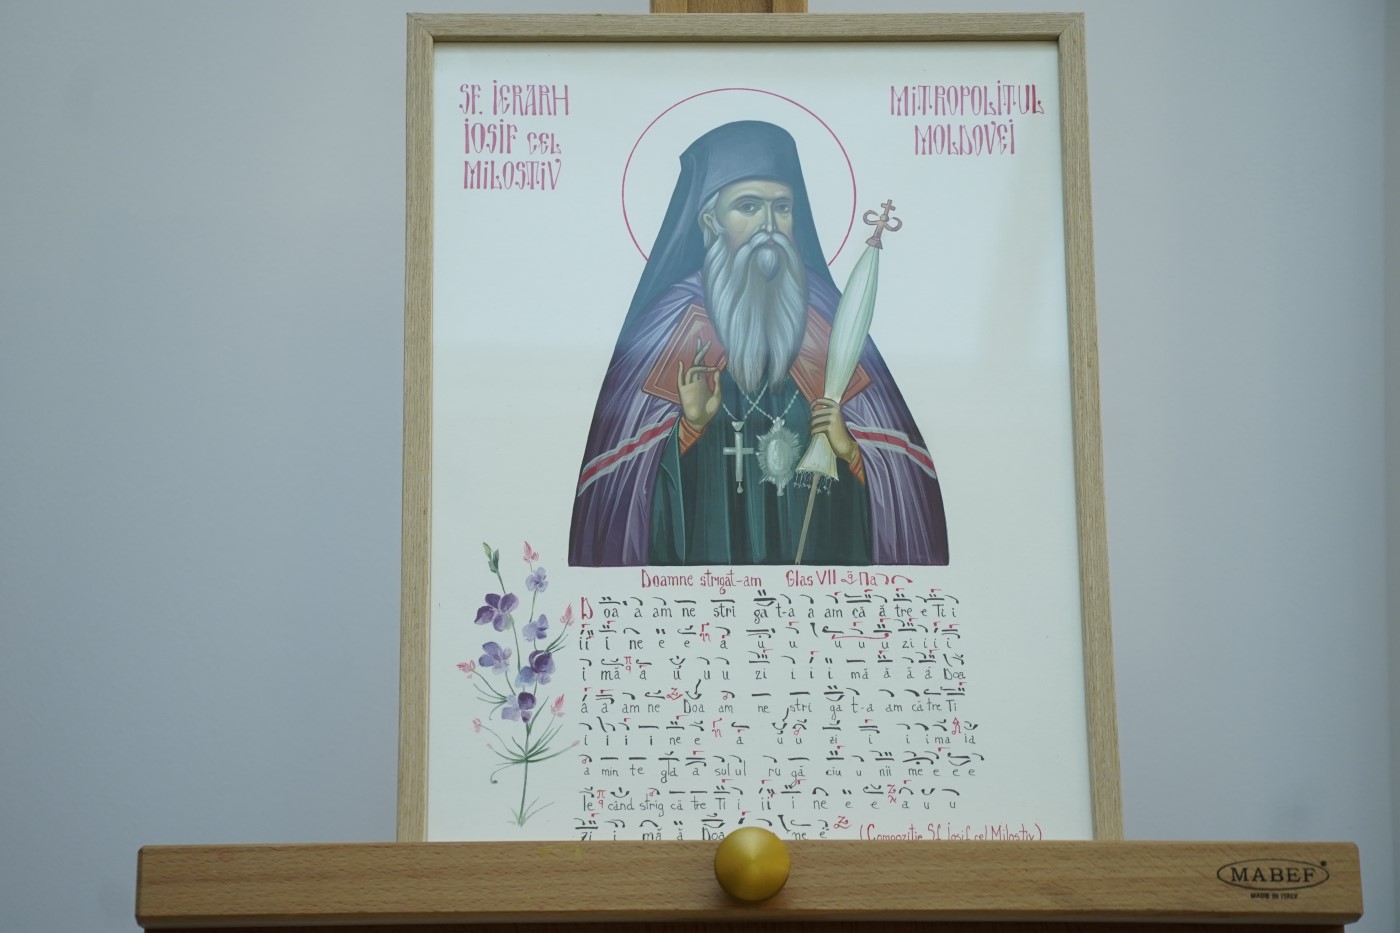 SF. IERARH
IOSIF CEL
MILOSTIV
MITROPOLITUL
MOLDOVEI
Doamne strigat-am Glas VII Πα
D oa a am ne stri ga t-a a am că ă tre e Ti i
i i ne e e ă u u u u u zi i i i
i mă ă u u u zi i i i mă ă ă ă Doa
a a am ne Doa am ne stri ga t-a am că tre Ti
i i i i ne e ă u u zi i i i ma Ia
a min te gla a sul ul ru gă ciu u nii me e e e
le când strig că tre Ti i i i i ne e e a u u
zi i mă ă Doa ne e
(Compoziție Sf. Iosif cel Milostiv)
MABEF
MADE IN ITALY